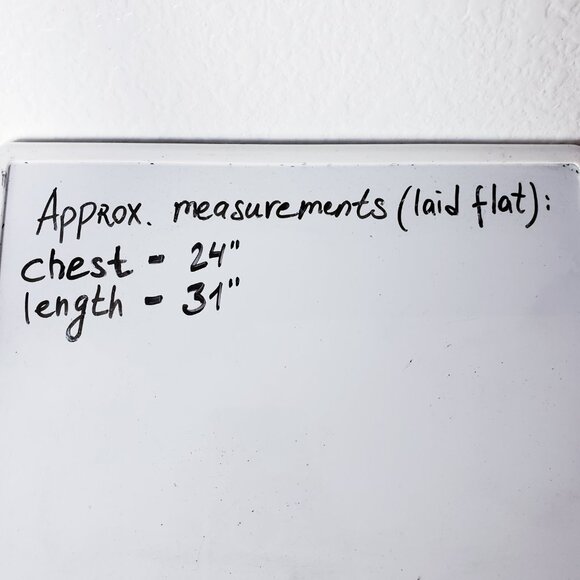 Approx. measurements (laid flat):
chest - 24"
length - 31"